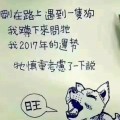 剛在路上遇到一隻狗
我蹲下來問牠
我2017年的運勢
牠慎重考慮了一下說
旺